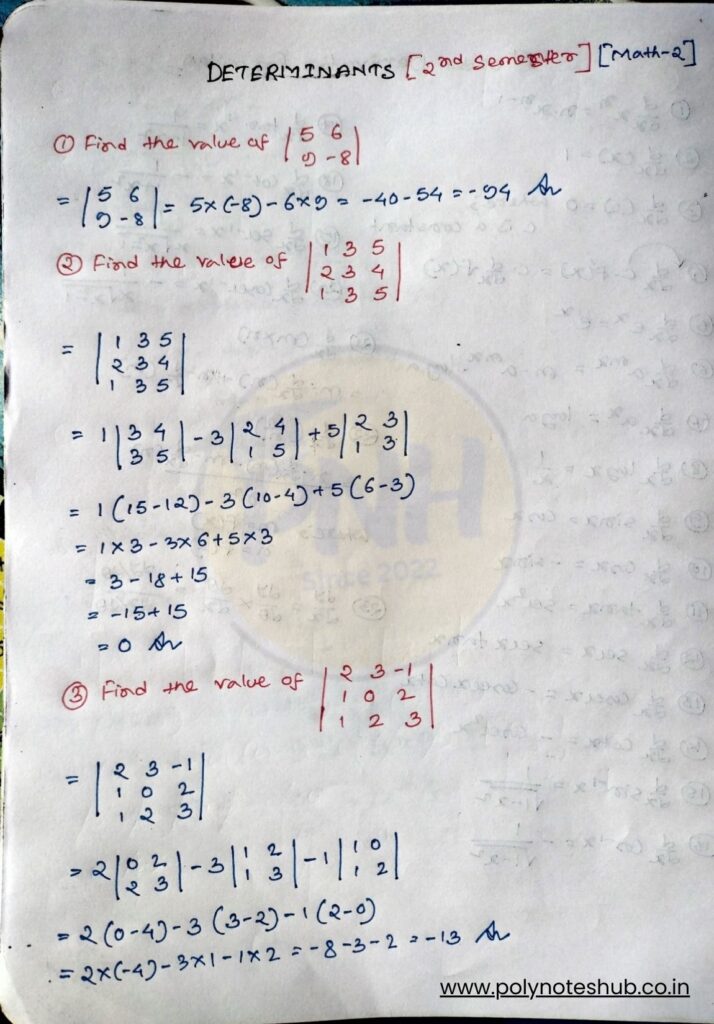 DETERMINANTS [2nd Semester] [Math-2]
① Find the value of |5 6|
|9 -8|
= |5 6| = 5×(-8) - 6×9 = -40-54 = -94 Ans
|9 -8|
② Find the value of |1 3 5|
|2 3 4|
|1 3 5|
= |1 3 5|
|2 3 4|
|1 3 5|
= 1|3 4| - 3|2 4| + 5|2 3|
|3 5| |1 5| |1 3|
= 1(15-12) - 3(10-4) + 5(6-3)
= 1×3 - 3×6 + 5×3
= 3 - 18 + 15
= -15 + 15
= 0 Ans
③ Find the value of |2 3 -1|
|1 0 2|
|1 2 3|
= |2 3 -1|
|1 0 2|
|1 2 3|
= 2|0 2| - 3|1 2| - 1|1 0|
|2 3| |1 3| |1 2|
= 2(0-4) - 3(3-2) - 1(2-0)
= 2×(-4) - 3×1 - 1×2 = -8-3-2 = -13 Ans
PNH
Since 2022
www.polynoteshub.co.in